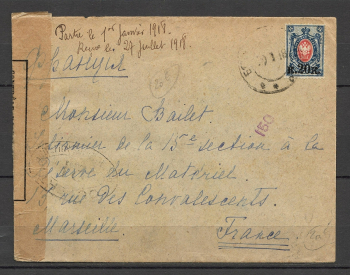 Partie le 1er Janvier 1918.
Reçue le 27 Juillet 1918.
Франція
к. 20 к.
160
Monsieur Bailet
de la 15e section à la
du Matériel
rue des Convalescents
Marseille
France